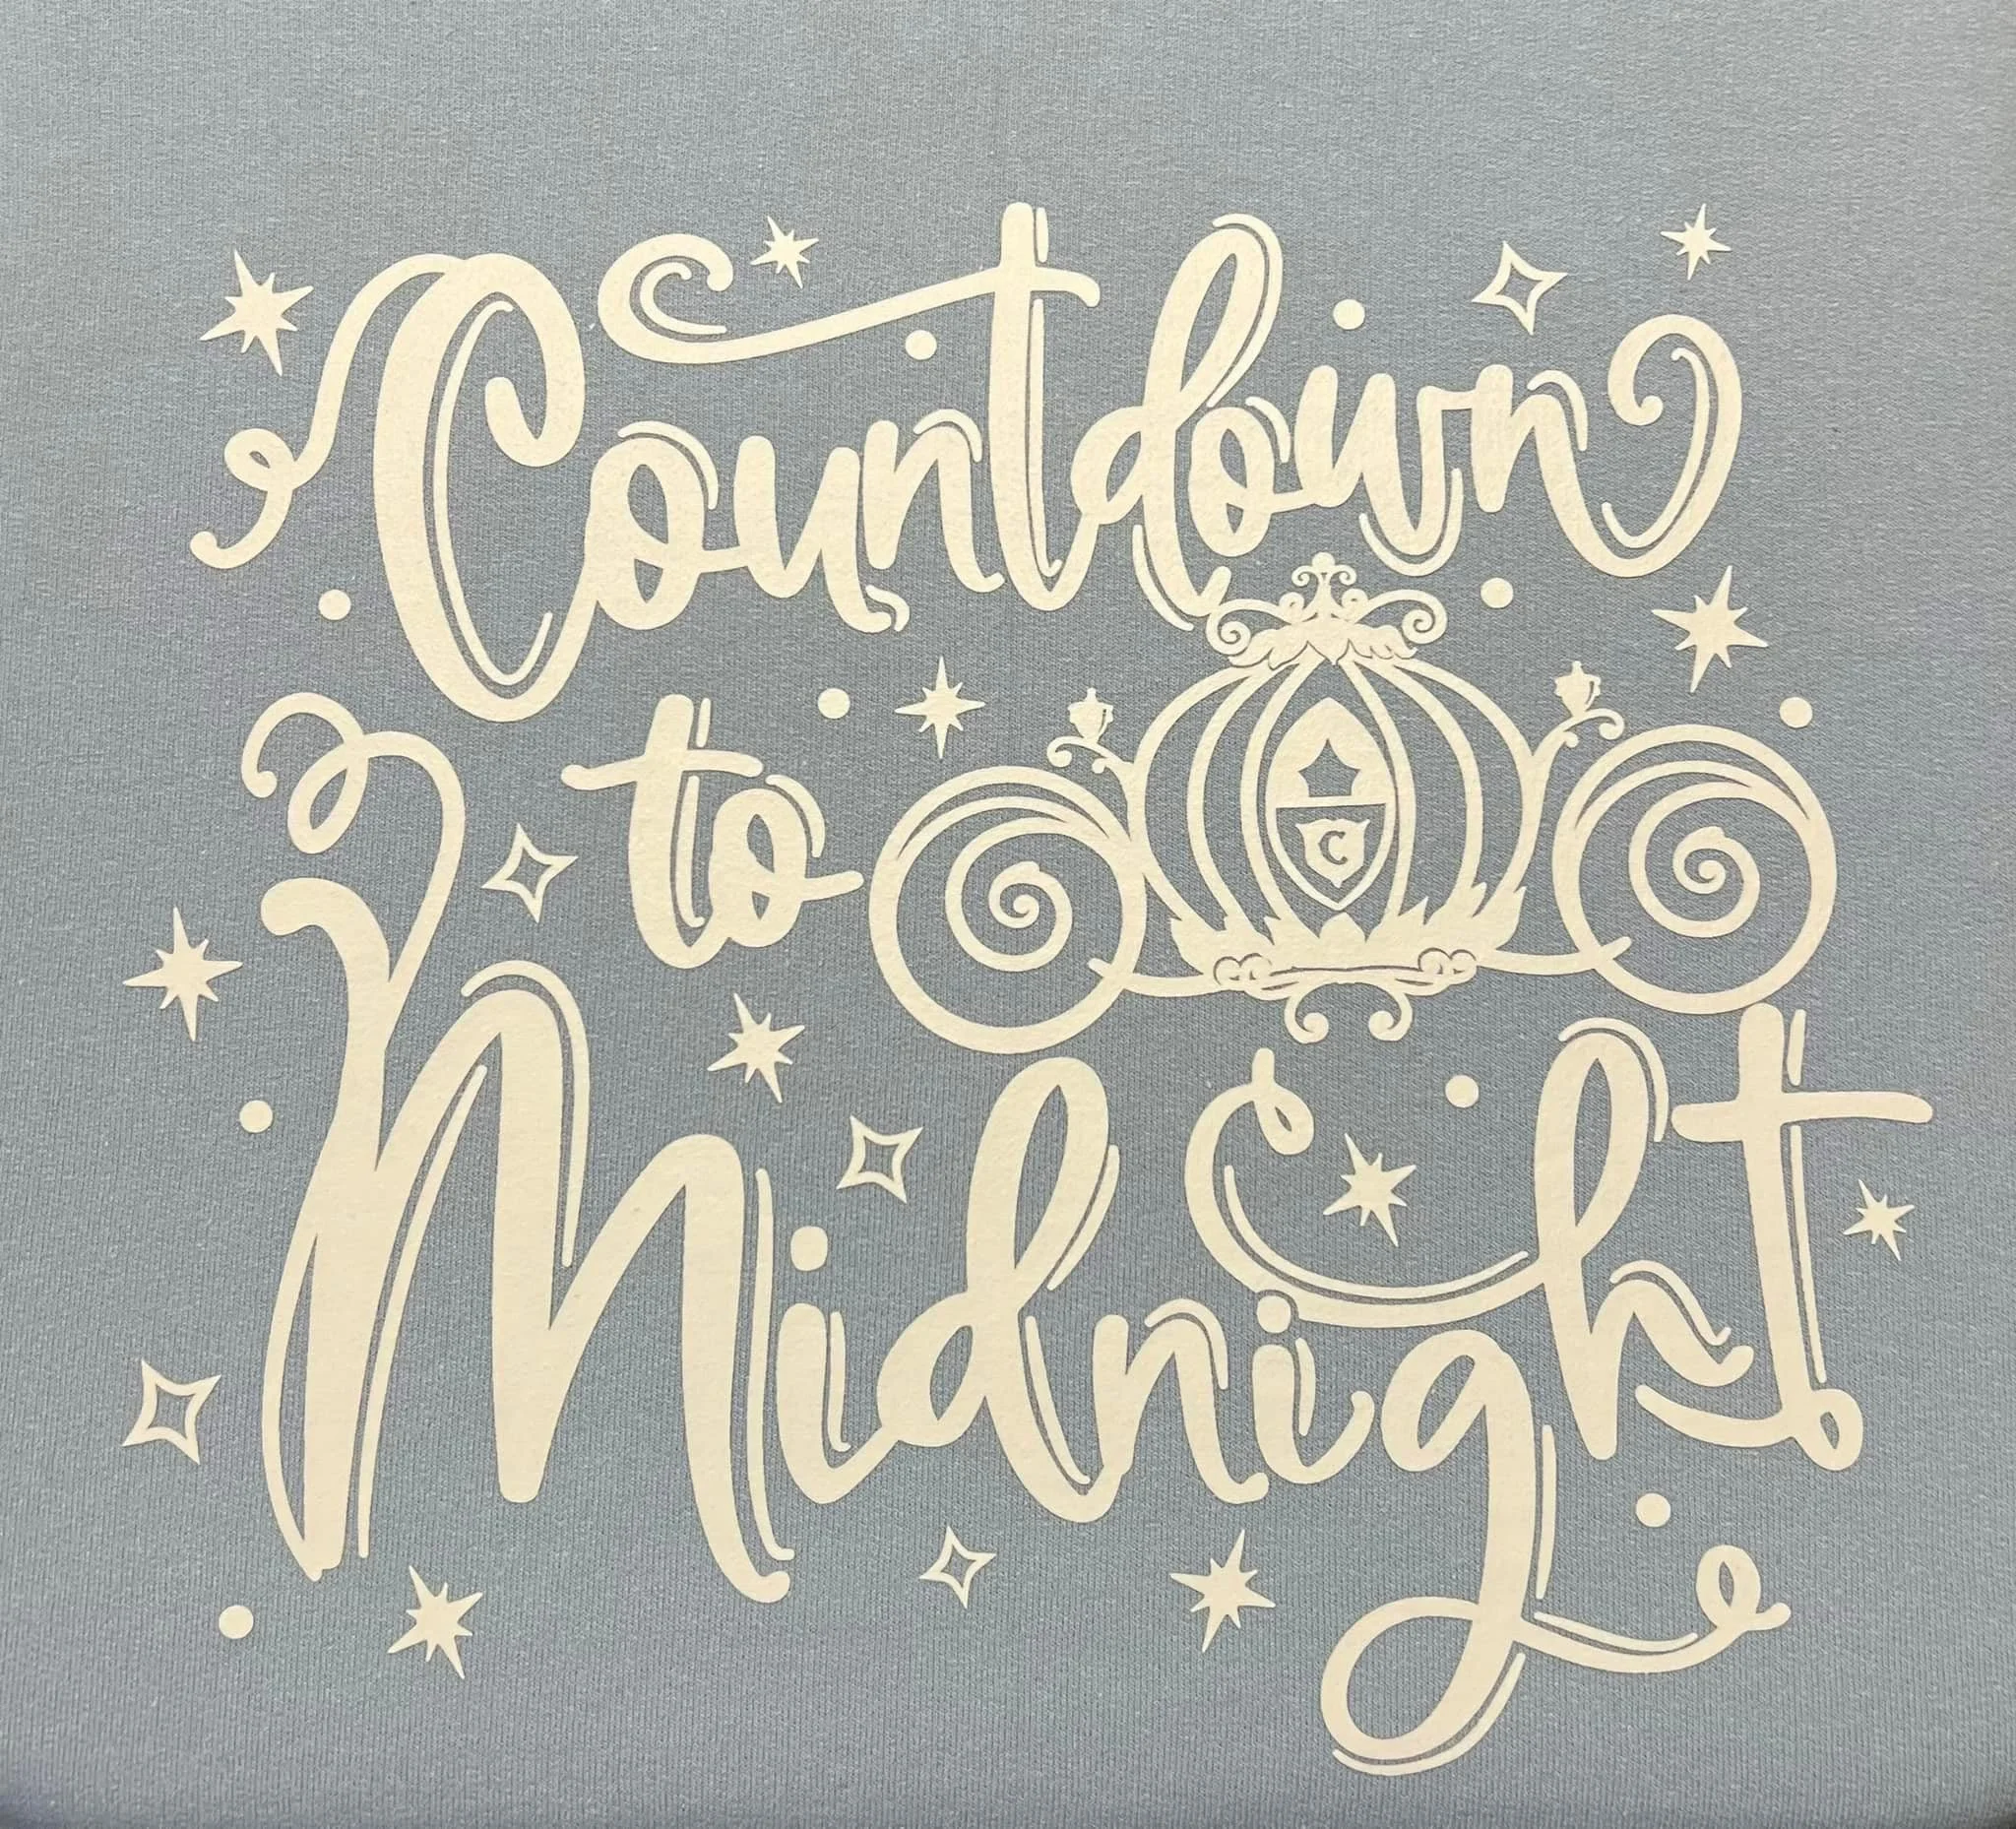 Countdown
to
C
Midnight